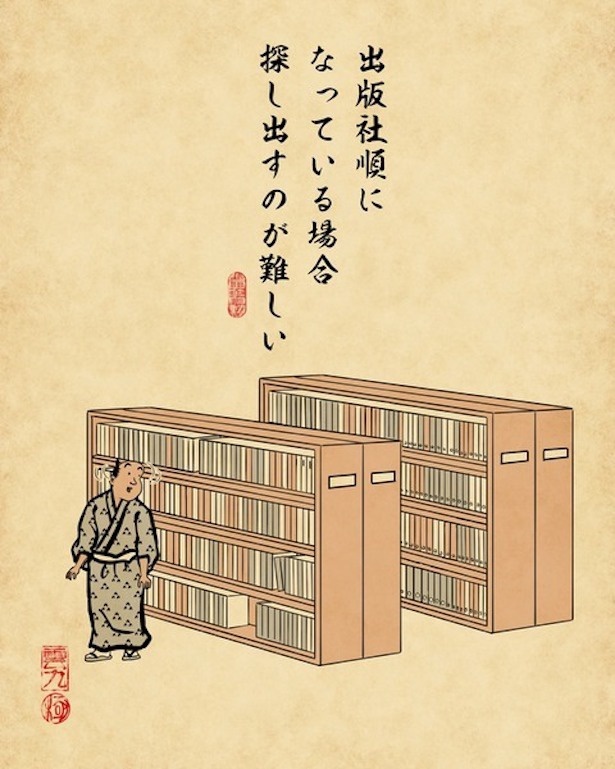 出版社順に
なっている場合
探し出すのが難しい